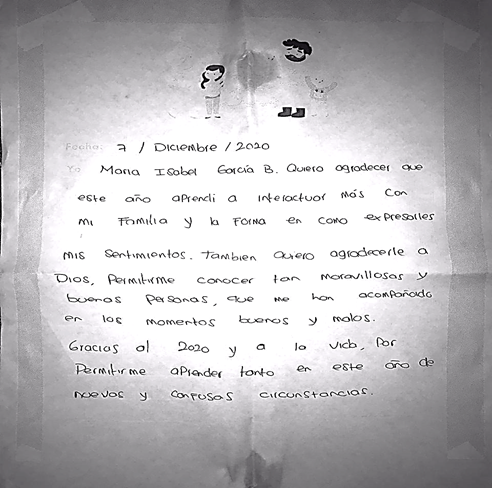 Fecha: 7 / Diciembre / 2020
Yo Maria Isabel Garcia B. Quiero agradecer que
este año aprendi a interactuar más con
mi Familia y la Forma en como expresarles
mis sentimientos. Tambien Quiero agradecerle a
Dios, Permitirme conocer tan maravillosas y
buenas Personas, que me han acompañado
en los momentos buenos y malos.
Gracias al 2020 y a la vida, Por
Permitirme aprender tanto en este año de
nuevas y confusas circunstancias.